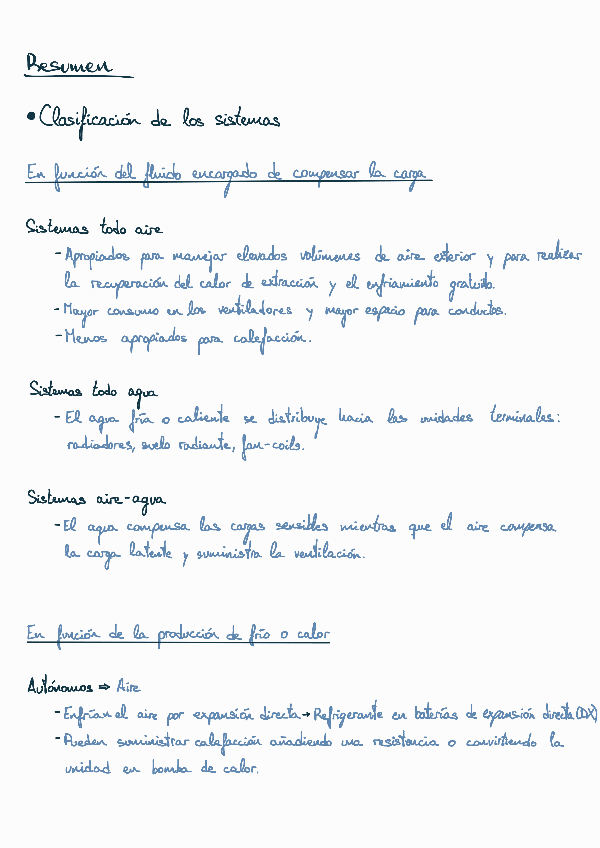 Resumen
• Clasificación de los sistemas
En función del fluido encargado de compensar la carga
Sistemas todo aire
- Apropiados para manejar elevados volúmenes de aire exterior y para realizar
la recuperación del calor de extracción y el enfriamiento gratuito.
- Mayor consumo en los ventiladores y mayor espacio para conductos.
- Menos apropiados para calefacción.
Sistemas todo agua
- El agua fría o caliente se distribuye hacia las unidades terminales:
radiadores, suelo radiante, fan-coils.
Sistemas aire-agua
- El agua compensa las cargas sensibles mientras que el aire compensa
la carga latente y suministra la ventilación.
En función de la producción de frío o calor
Autónomos ⇒ Aire
- Enfrían el aire por expansión directa → Refrigerante en baterías de expansión directa (DX)
- Pueden suministrar calefacción añadiendo una resistencia o convirtiendo la
unidad en bomba de calor.